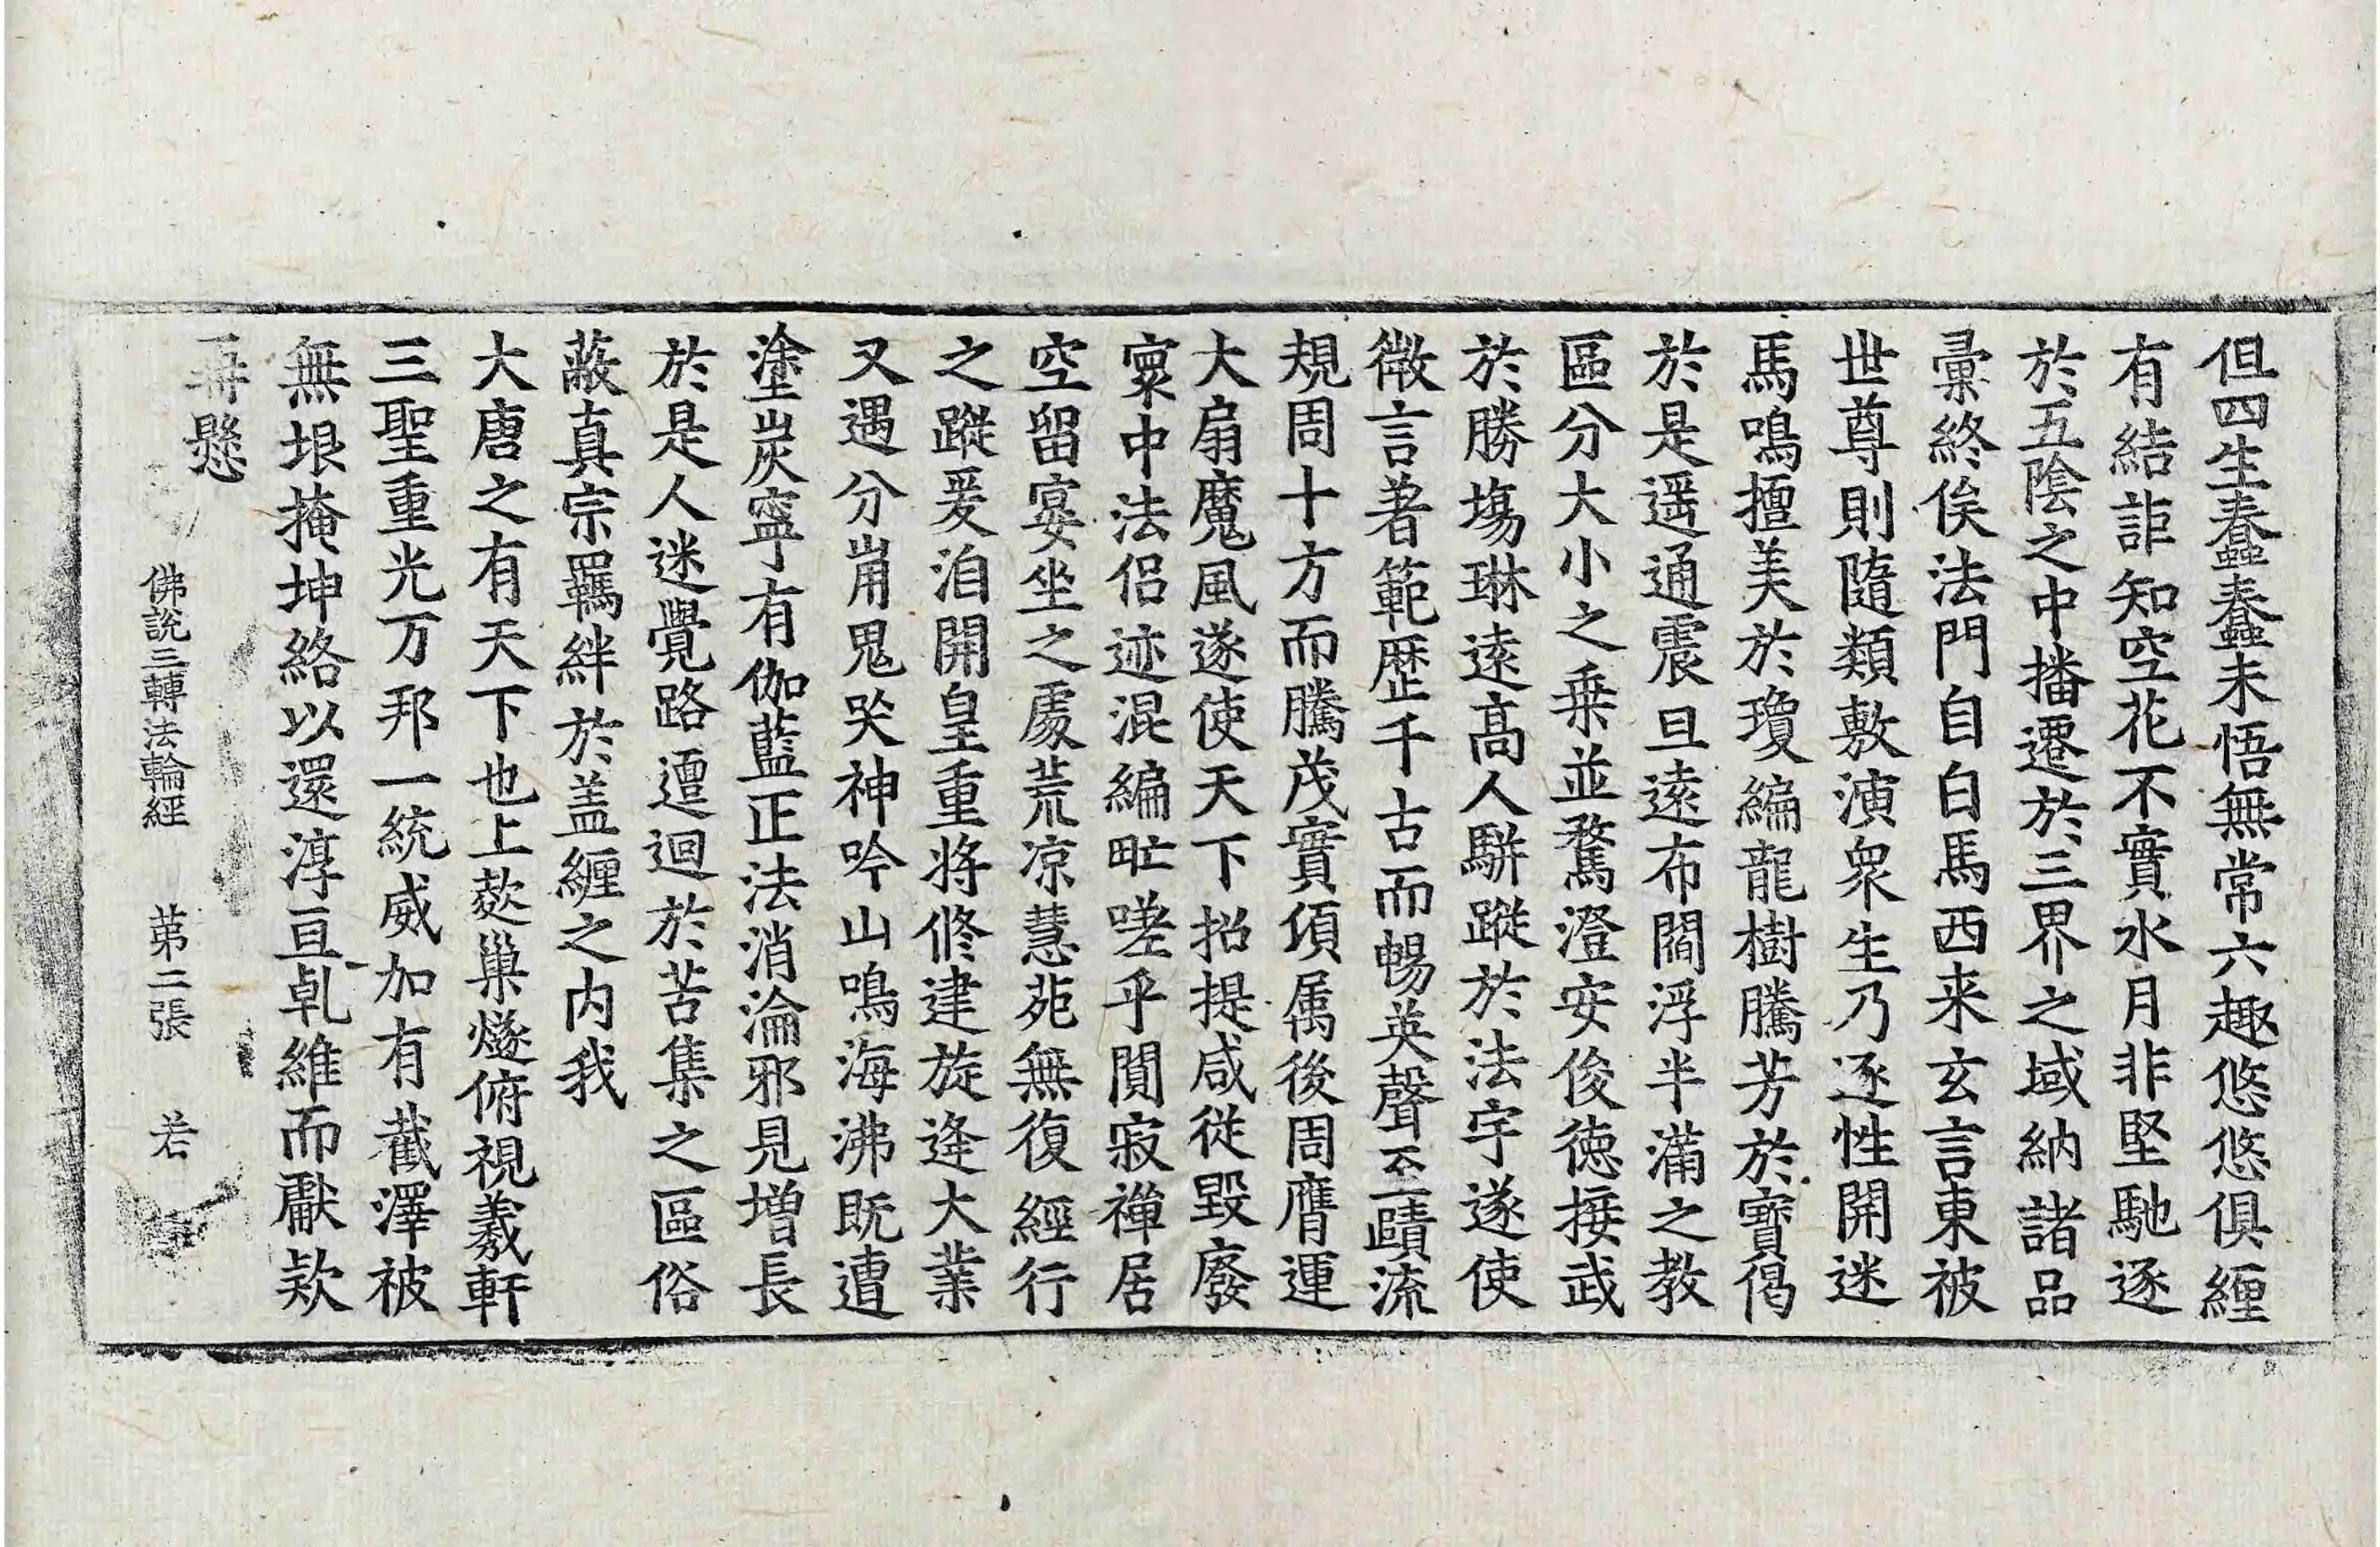 但四生蠢蠢未悟無常六趣悠悠俱纒
有結詎知空花不實水月非堅馳逐
於五陰之中播遷於三界之域納諸品
彙終俟法門自白馬西来玄言東被
世尊則隨類敷演衆生乃逐性開迷
馬鳴擅美於瓊編龍樹騰芳於寶偈
於是遥通震旦逺布閻浮半滿之教
區分大小之乗並騖澄安俊德接武
於勝塲琳逺髙人騈蹤於法宇遂使
微言著範歴千古而暢英聲至賾流
規周十方而騰茂實湏属後周膺運
大扇魔風遂使天下招提咸従毀廢
寰中法侣迹混編甿嗟乎閴寂禪居
空留宴坐之處荒凉慧苑無復經行
之蹤爰洎開皇重將修建旋逢大業
又遇分崩鬼哭神吟山鳴海沸既遭
塗炭寧有伽藍正法消淪邪見增長
於是人迷覺路邅迴於苦集之區俗
蔽真宗羈絆於盖纒之内我
大唐之有天下也上薆巢燧俯視羲軒
三聖重光万邦一統威加有截澤被
無垠掩坤絡以還淳亘乹維而獻欵
再懸
佛說三轉法輪經 苐二張 若